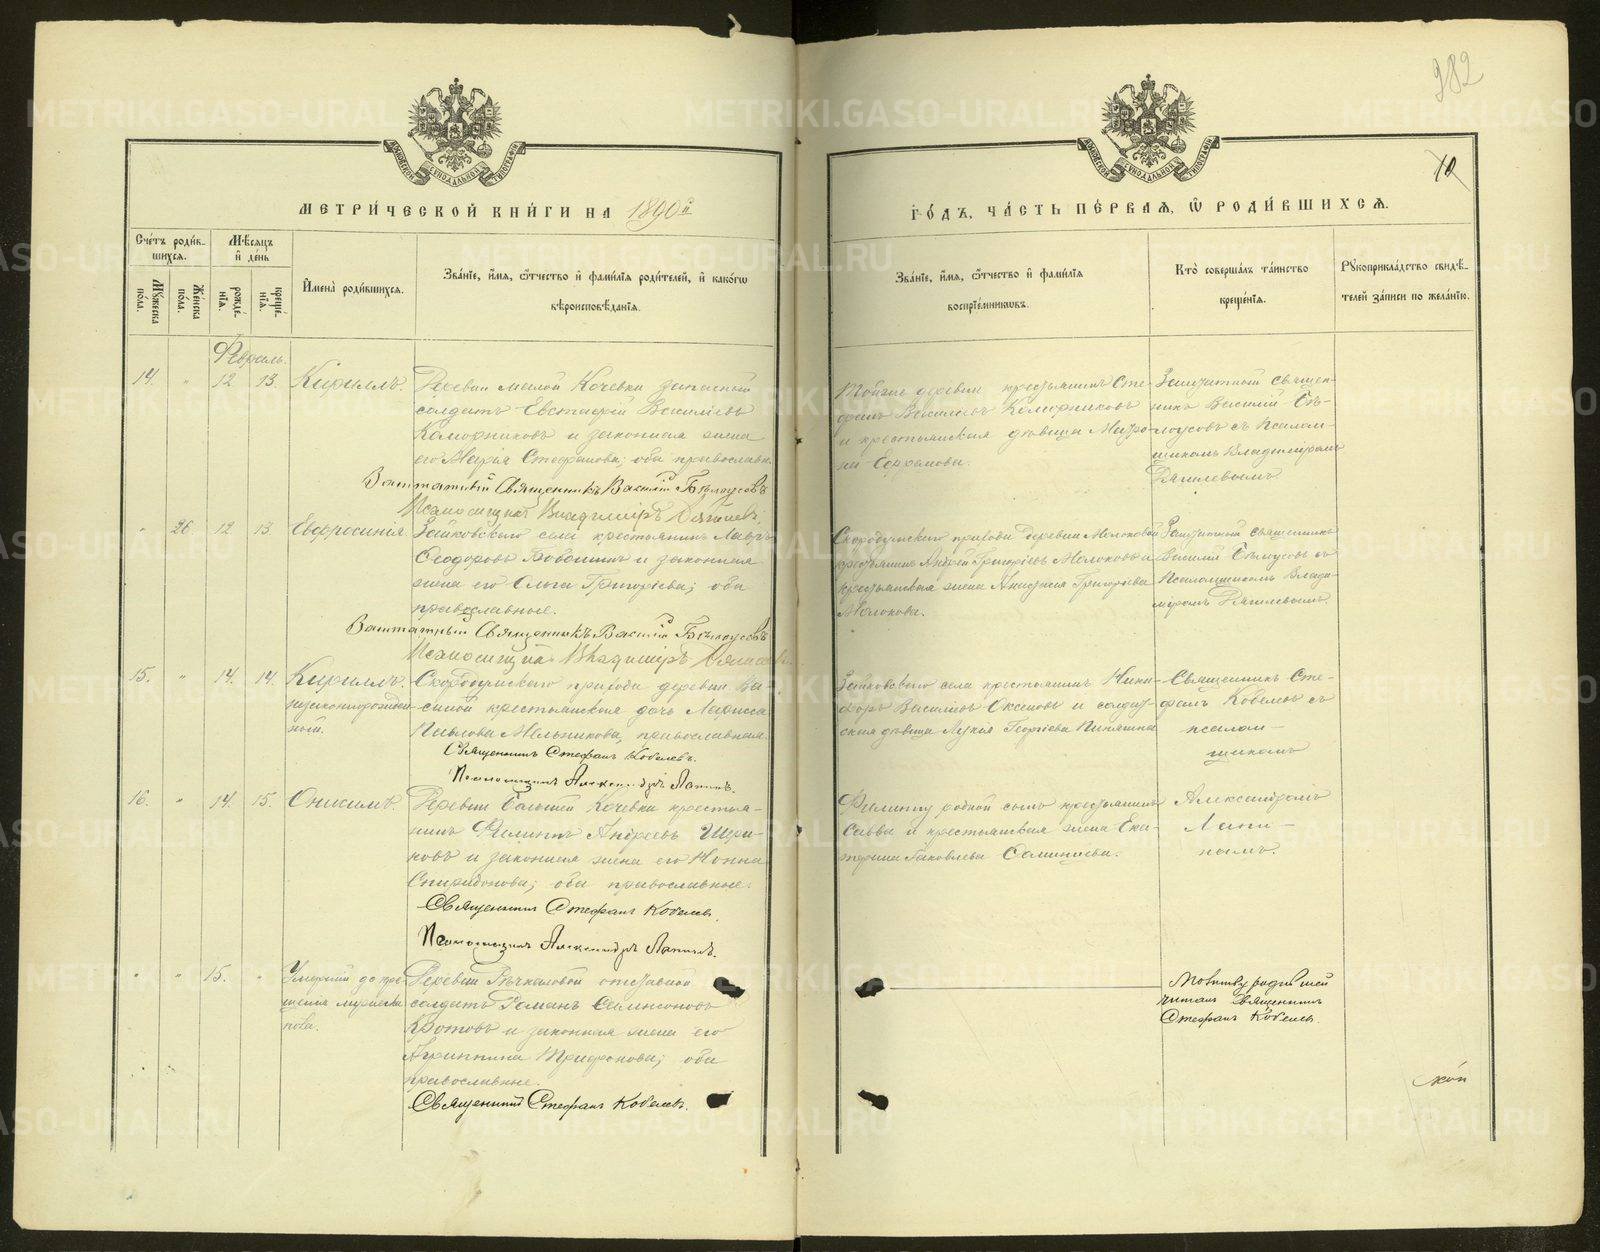 282
10
МЕТРИ́ЧЕСКОЙ КНИ́ГИ НА 1890й
ГО́ДЪ, ЧА́СТЬ ПЕ́РВАЯ, Ѿ РОДИ́ВШИХСЯ.
Сче́тъ роди́в-
шихся.
Мꙋ́жеска
по́ла.
Же́нска
по́ла.
Мѣ́сяцъ
и҆ де́нь
рожде́-
нїя.
креще́-
нїя.
И҆мена̀ роди́вшихся.
Зва́нїе, и҆́мя, ѻ҆́тчество и҆ фами́лїя роди́телей, и҆ како́гѡ
вѣроисповѣ́данїя.
Зва́нїе, и҆́мя, ѻ҆́тчество и҆ фами́лїя
воспрїе́мникѡвъ.
Кто̀ соверша́лъ та́инство
креще́нїя.
Рꙋкоприкла́дство свидѣ́-
телей за́писи по жела́нїю.
Февраль.
14. " 12 13. Кириллъ.
Деревни Малой Кочевки запасный
солдатъ Евстафій Василіевъ
Коморниковъ и законная жена
его Марія Стефанова; оба православн.
Заштатный Священникъ Василій Бѣлоусовъ
Псаломщикъ Владиміръ
Тойже деревни крестьянинъ Сте-
фанъ Васильевъ Коморниковъ
и крестьянская дѣвица Матро-
на
Заштатный священ-
никъ Василій Бѣ-
лоусовъ съ псалом-
щикомъ Владиміромъ
" 26. 12 13. Евфросинія.
Зайковскаго села крестьянинъ Лавръ
Ѳеодоровъ и законная
жена его Ольга Григоріева; оба
православные.
Заштатный Священникъ Василій Бѣлоусовъ
Псаломщикъ Владиміръ
Скородумскаго прихода деревни Молоковой
крестьянинъ Андрей Григорьевъ Молоковъ и
крестьянская жена Анастасія Григоріева
Молокова.
Заштатный священникъ
Василій Бѣлоусовъ съ
псаломщикомъ Влади-
міромъ
15. " 14. 14. Кириллъ.
незаконнорожден-
ный.
Скородумскаго прихода деревни Ва-
синой крестьянская дочь Лариса
Павлова Мельникова, православная.
Священникъ Стефанъ Кобелевъ.
Псаломщикъ Александръ Лапинъ.
Зайковскаго села крестьянинъ Ники-
форъ Васильевъ и солдат-
ская дѣвица Георгіева
Священникъ Сте-
фанъ Кобелевъ съ
псалом-
щикомъ
16. " 14. 15. Онисимъ.
Деревни Большей Кочевки крестья-
нинъ Филиппъ Андреевъ
и законная жена его Нонна
Спиридонова; оба православные.
Священникъ Стефанъ Кобелевъ.
Псаломщикъ Александръ Лапинъ.
Филиппу родной сынъ крестьянинъ
Савва и крестьянская жена Ека-
терина Іаковлева
Александромъ
Лапи-
нымъ.
" " 15. " Умершій до кре-
щенія мужеска
пола.
Деревни отставной
солдатъ Романъ Самсоновъ
Кротовъ и законная жена его
Агриппина Трифонова; оба
православные.
Священникъ Стефанъ Кобелевъ.
Молитву родившей
читалъ Священникъ
Стефанъ Кобелевъ.
METRIKI.GASO-URAL.RU